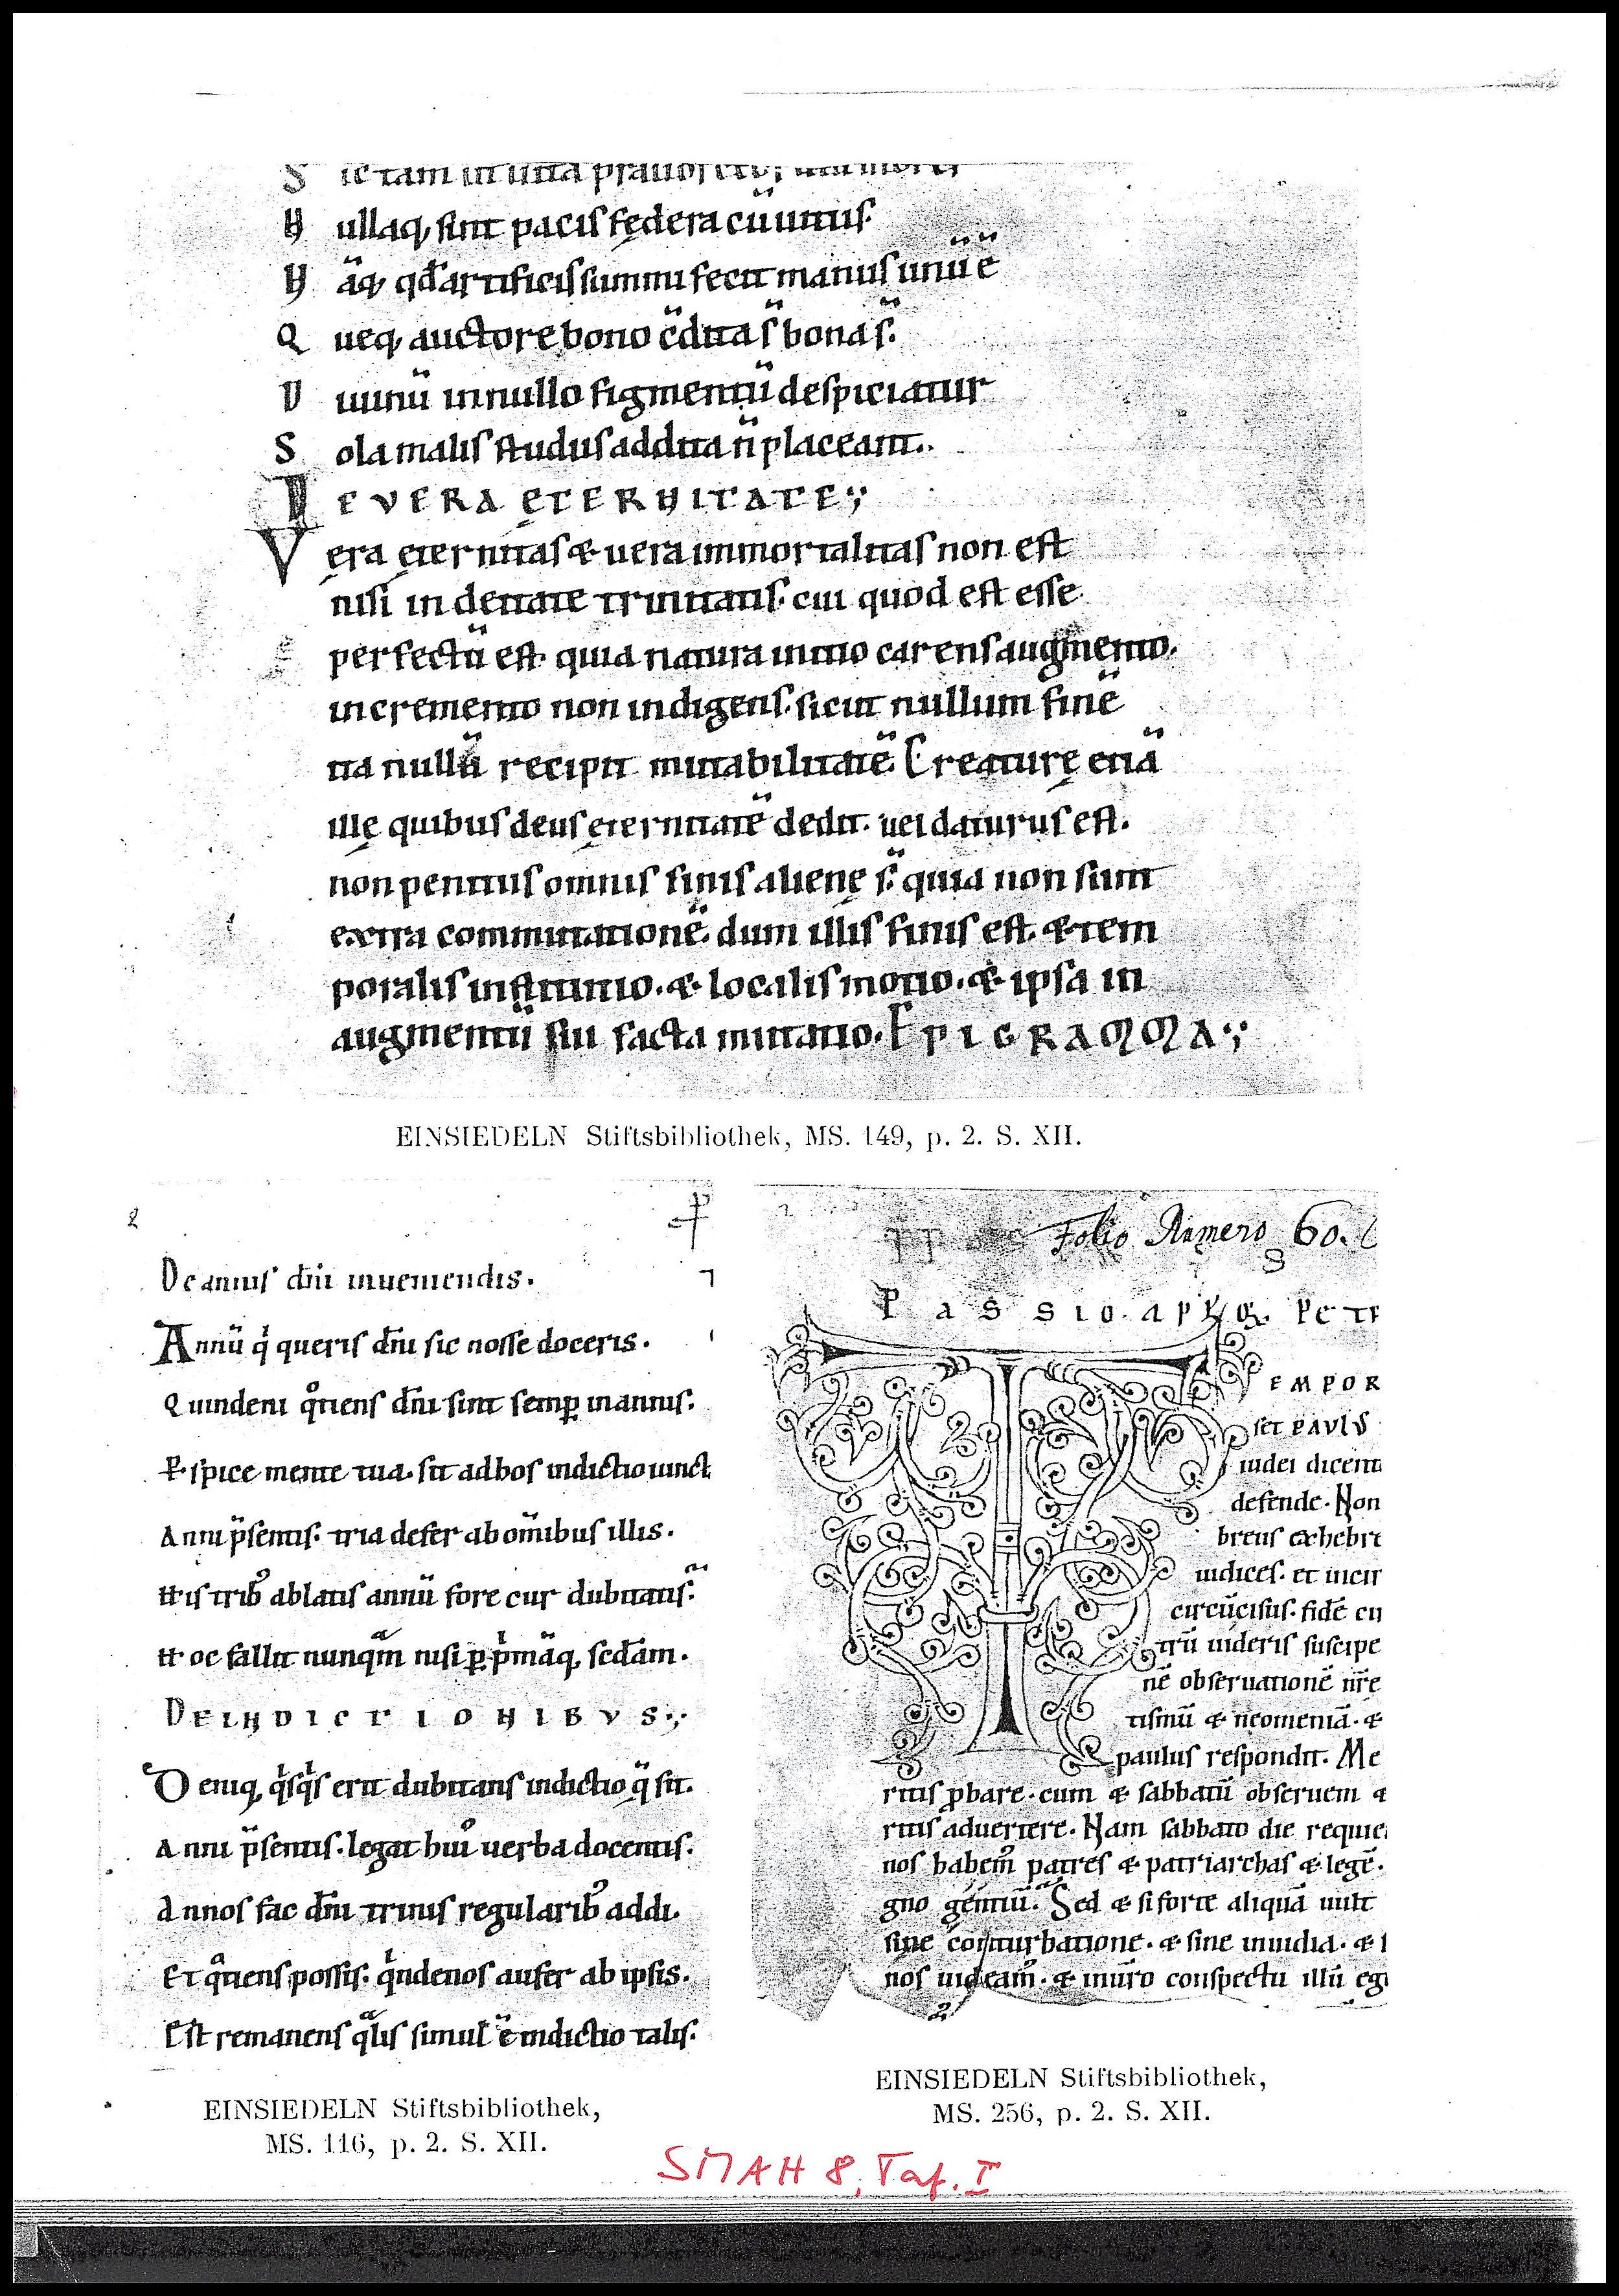 S ic tam in uita prauor
N ullaq, sint pacis fędera cū uitiis.
N āq, qd̄ artificis summi fecit manus unū ē
Q ueq, auctore bono c̄dita s̄ bona s̄.
D iuinū in nullo figmentū despiciatur
S ola malis studiis addita n̄ placeant.
DE VERA ĘTERNITATE;
Vera ęternitas & uera immortalitas non est
nisi in deitate trinitatis. cui quod est esse
perfectū est. quia natura initio carens augmento.
incremento non indigens. sicut nullum finē
ita nullā recipit mutabilitatē. Creaturę etiā
illę quibus deus ęternitatē dedit. uel daturus est.
non penitus omnis finis alienę s̄. quia non sunt
extra commutationē. dum illis finis est. & tem
poralis institutio. & localis motio. & ipsa in
augmentū sui facta mutatio. EPIGRAMMA;
EINSIEDELN Stiftsbibliothek, MS. 149, p. 2. S. XII.
2
De annis dn̄i inueniendis.
Annū qͥ queris dn̄i sic nosse doceris.
Quindeni qͦtiens dn̄i sint semꝑ in annis.
Ꝑspice mente tua. sit ad hos indictio iunct
Anni p̄sentis. tria defer ab om̄ibus illis.
His tribꝰ ablatis annū fore cur dubitatis.
Hoc fallit nunqᵃm nisi ꝑ pͥmāq, sc̄dam.
DE INDICTIONIBVS;
Deniq, qͥsqͥs erit dubitans indictio qᵃ sit.
Anni p̄sentis. legat huiꝰ uerba docentis.
Annos fac dn̄i trinis regularibꝰ addi.
Et qͦtiens possis. qͥndenos aufer ab ipsis.
Est remanens qᵃlis simul ē indictio talis.
EINSIEDELN Stiftsbibliothek,
MS. 116, p. 2. S. XII.
Folio Numero 60.
8
Passio. aplꝝ. Petr
TEMPOR
set PAVLVS
iudei dicent
defende. Non
breus ex hebre
iudices. et incir
circūcisus. fidē cu
trū uideris suscipe
nē obseruationē nr̄e
tismū & neomeniā. &
paulus respondit. Me
ritis ꝓbare. cum & sabbatū obseruem &
ritis aduertere. Nam sabbato die requie
nos habemꝰ patres & patriarchas & legē.
gno gentiū. Sed & si forte aliquā uult
sine conturbatione. & sine inuidia. &
nos uideamꝰ. & in nr̄o conspectu illū eg
EINSIEDELN Stiftsbibliothek,
MS. 256, p. 2. S. XII.
SMAH 8, Taf. I